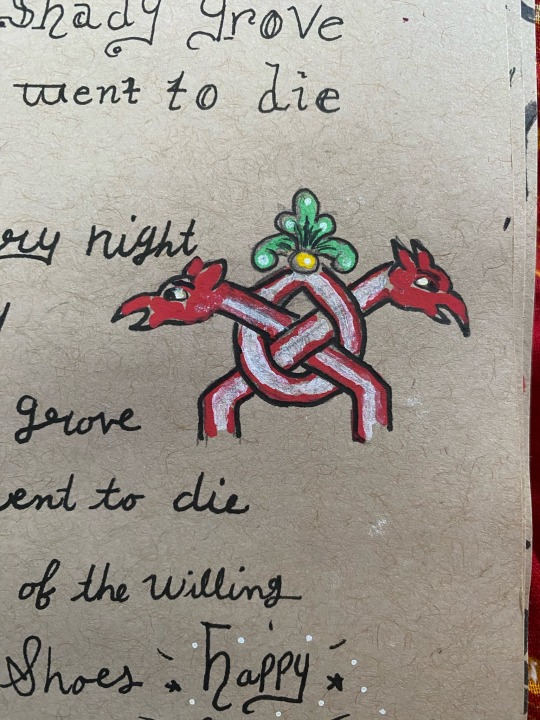 Shady grove
went to die
night
grove
to die
of the willing
Shoes happy